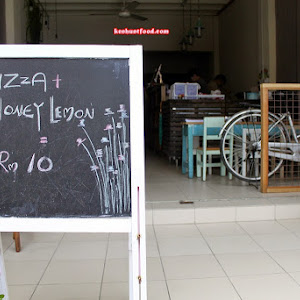 kenhuntfood.com
IZZA +
ONEY LEMON
RM 10